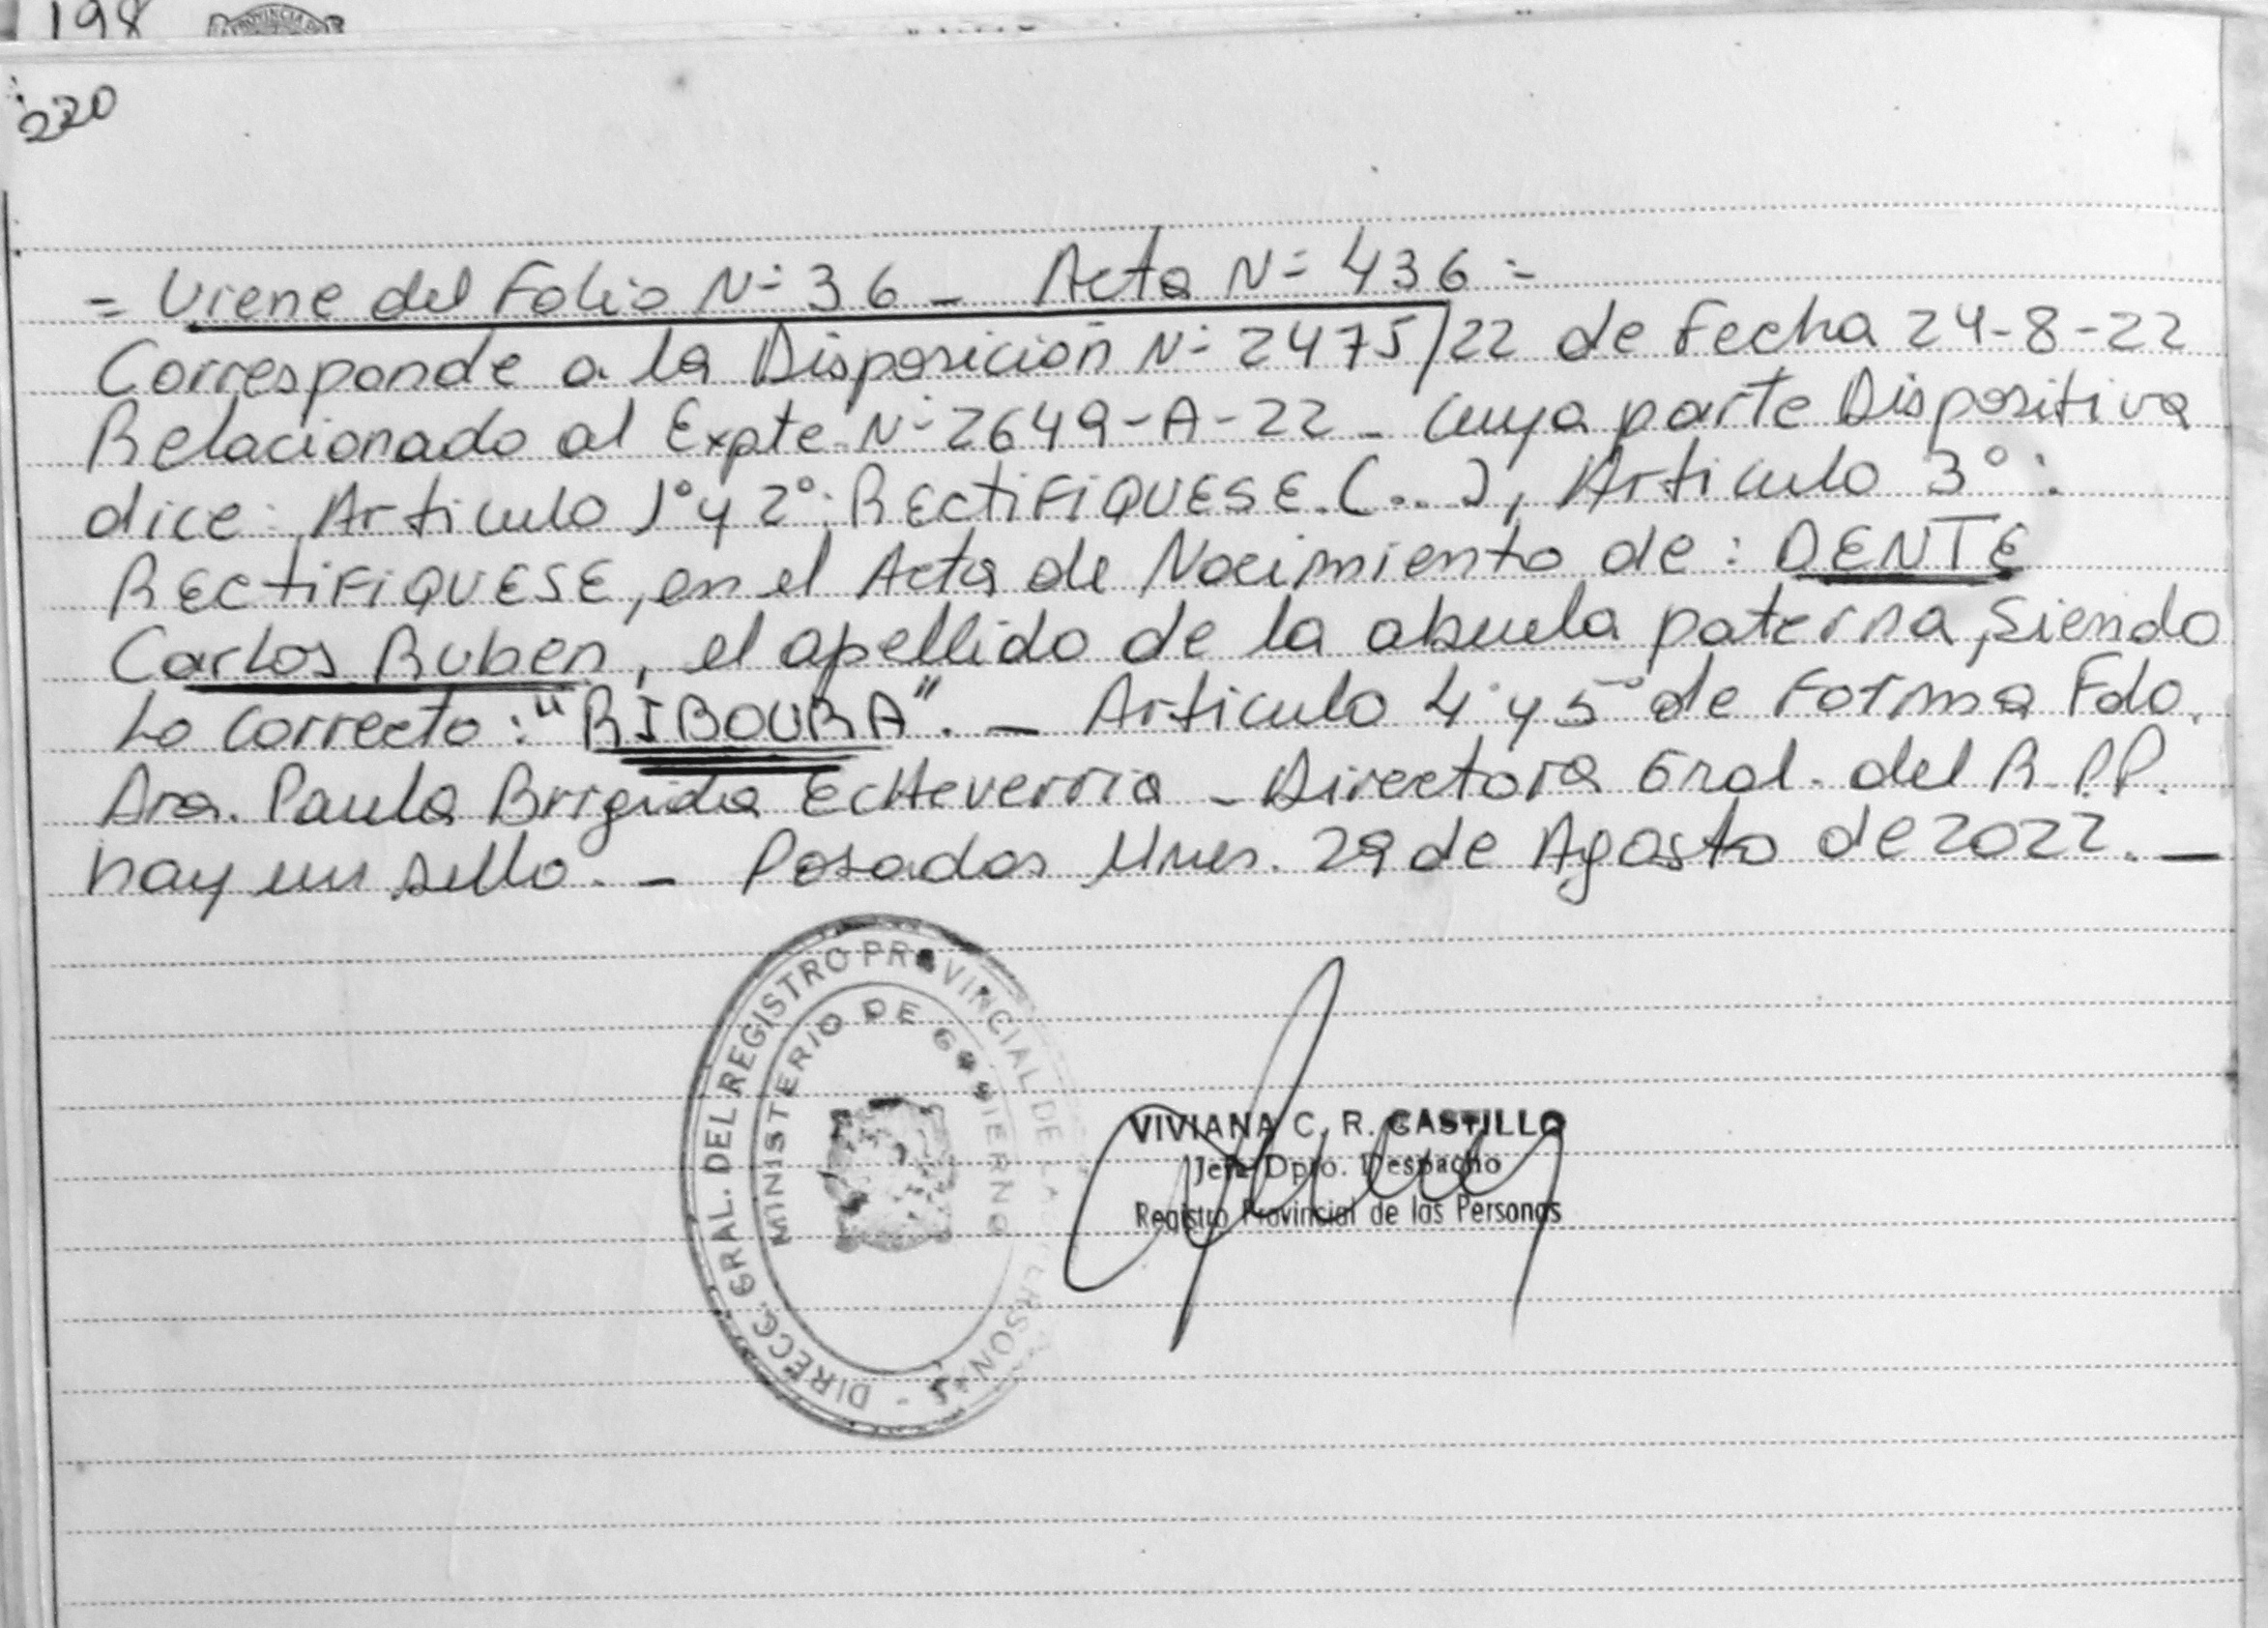 198
PROVINCIA DE
220
= Viene del Folio Nº 36 - Acta Nº 436 =
Corresponde a la Disposición Nº 2475/22 de Fecha 24-8-22
Relacionado al Expte Nº 2649-A-22 - Cuya parte Dispositiva
dice: Articulo 1º y 2º: RECTIFIQUESE. (...), Articulo 3º:
RECTIFIQUESE, en el Acta de Nacimiento de: DENTE
Carlos Ruben, el apellido de la abuela paterna, siendo
Lo correcto: "RIBOURA". - Articulo 4º y 5º de Forma Fdo.
Dra. Paula Brigida Echeverria - Directora Gral. del R.P.P.
hay un sello. - Posadas Mnes. 29 de Agosto de 2022. -
DIRECC. GRAL. DEL REGISTRO PROVINCIAL DE LAS PERSONAS -
MINISTERIO DE GOBIERNO
VIVIANA C. R. CASTILLO
Jefe Dpto. Despacho
Registro Provincial de las Personas